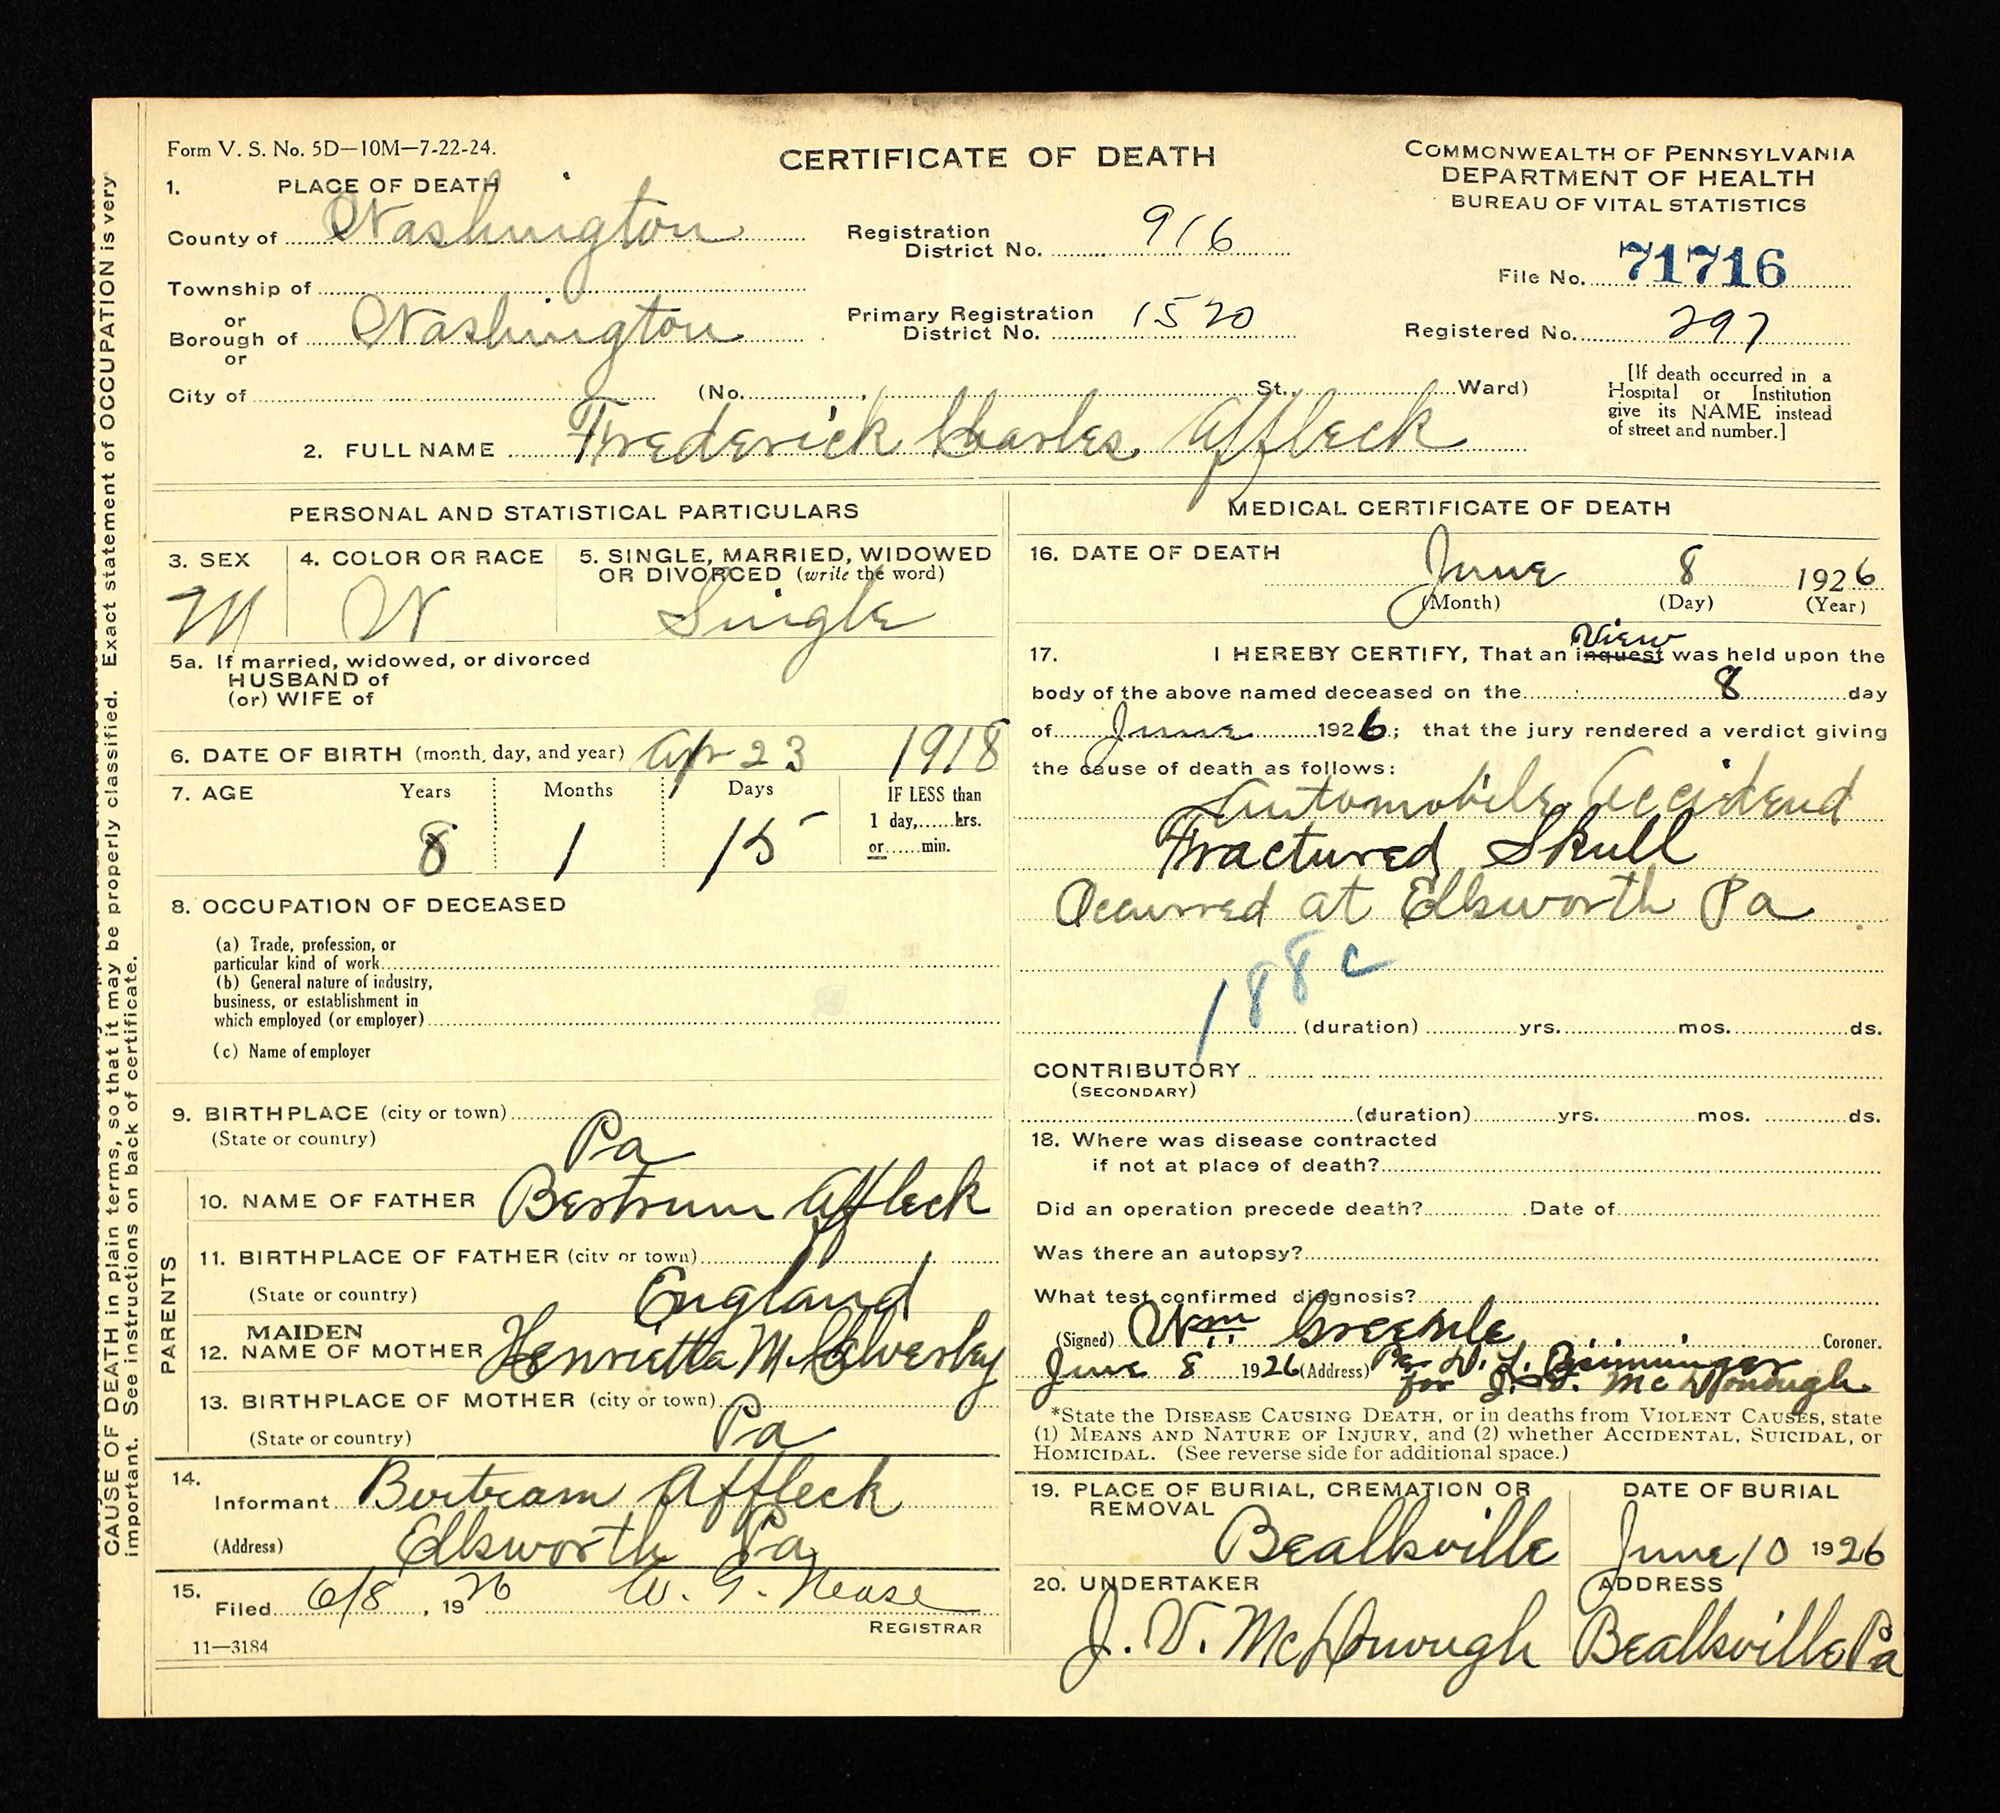 Form V. S. No. 5D—10M—7-22-24.
CERTIFICATE OF DEATH
COMMONWEALTH OF PENNSYLVANIA
DEPARTMENT OF HEALTH
BUREAU OF VITAL STATISTICS
1. PLACE OF DEATH
County of Washington
Registration District No. 916
File No. 71716
Township of
or
Borough of Washington
or
Primary Registration District No. 1520
Registered No. 297
City of (No. , St., Ward)
[If death occurred in a
Hospital or Institution
give its NAME instead
of street and number.]
2. FULL NAME Frederick Charles Affleck
PERSONAL AND STATISTICAL PARTICULARS
3. SEX
M
4. COLOR OR RACE
W
5. SINGLE, MARRIED, WIDOWED
OR DIVORCED (write the word)
Single
5a. If married, widowed, or divorced
HUSBAND of
(or) WIFE of
6. DATE OF BIRTH (month, day, and year) Apr 23 1918
7. AGE Years Months Days
8 1 15
IF LESS than
1 day,......hrs.
or......min.
8. OCCUPATION OF DECEASED
(a) Trade, profession, or
particular kind of work
(b) General nature of industry,
business, or establishment in
which employed (or employer)
(c) Name of employer
9. BIRTHPLACE (city or town)
(State or country) Pa
PARENTS
10. NAME OF FATHER Bertrum Affleck
11. BIRTHPLACE OF FATHER (city or town)
(State or country) England
MAIDEN
12. NAME OF MOTHER Henrietta M.
13. BIRTHPLACE OF MOTHER (city or town)
(State or country) Pa
14.
Informant Bertram Affleck
(Address) Ellsworth Pa
15.
Filed 6/8, 1926 W. G. Nease
REGISTRAR
11—3184
MEDICAL CERTIFICATE OF DEATH
16. DATE OF DEATH June 8 1926
(Month) (Day) (Year)
View
17. I HEREBY CERTIFY, That an inquest was held upon the
body of the above named deceased on the 8 day
of June 1926; that the jury rendered a verdict giving
the cause of death as follows:
Automobile Accident
Fractured Skull
Occurred at Ellsworth Pa
188c
(duration) yrs. mos. ds.
CONTRIBUTORY
(SECONDARY)
(duration) yrs. mos. ds.
18. Where was disease contracted
if not at place of death?
Did an operation precede death? Date of
Was there an autopsy?
What test confirmed diagnosis?
(Signed) Wm Greenle Coroner.
June 8 1926 (Address) Per W. L.
for J. V. McDonough
*State the DISEASE CAUSING DEATH, or in deaths from VIOLENT CAUSES, state
(1) MEANS AND NATURE OF INJURY, and (2) whether ACCIDENTAL, SUICIDAL, or
HOMICIDAL. (See reverse side for additional space.)
19. PLACE OF BURIAL, CREMATION OR
REMOVAL
Beallsville
DATE OF BURIAL
June 10 1926
20. UNDERTAKER
J. V. McDonough
ADDRESS
Beallsville Pa
CAUSE OF DEATH in plain terms, so that it may be properly classified. Exact statement of OCCUPATION is very
important. See instructions on back of certificate.